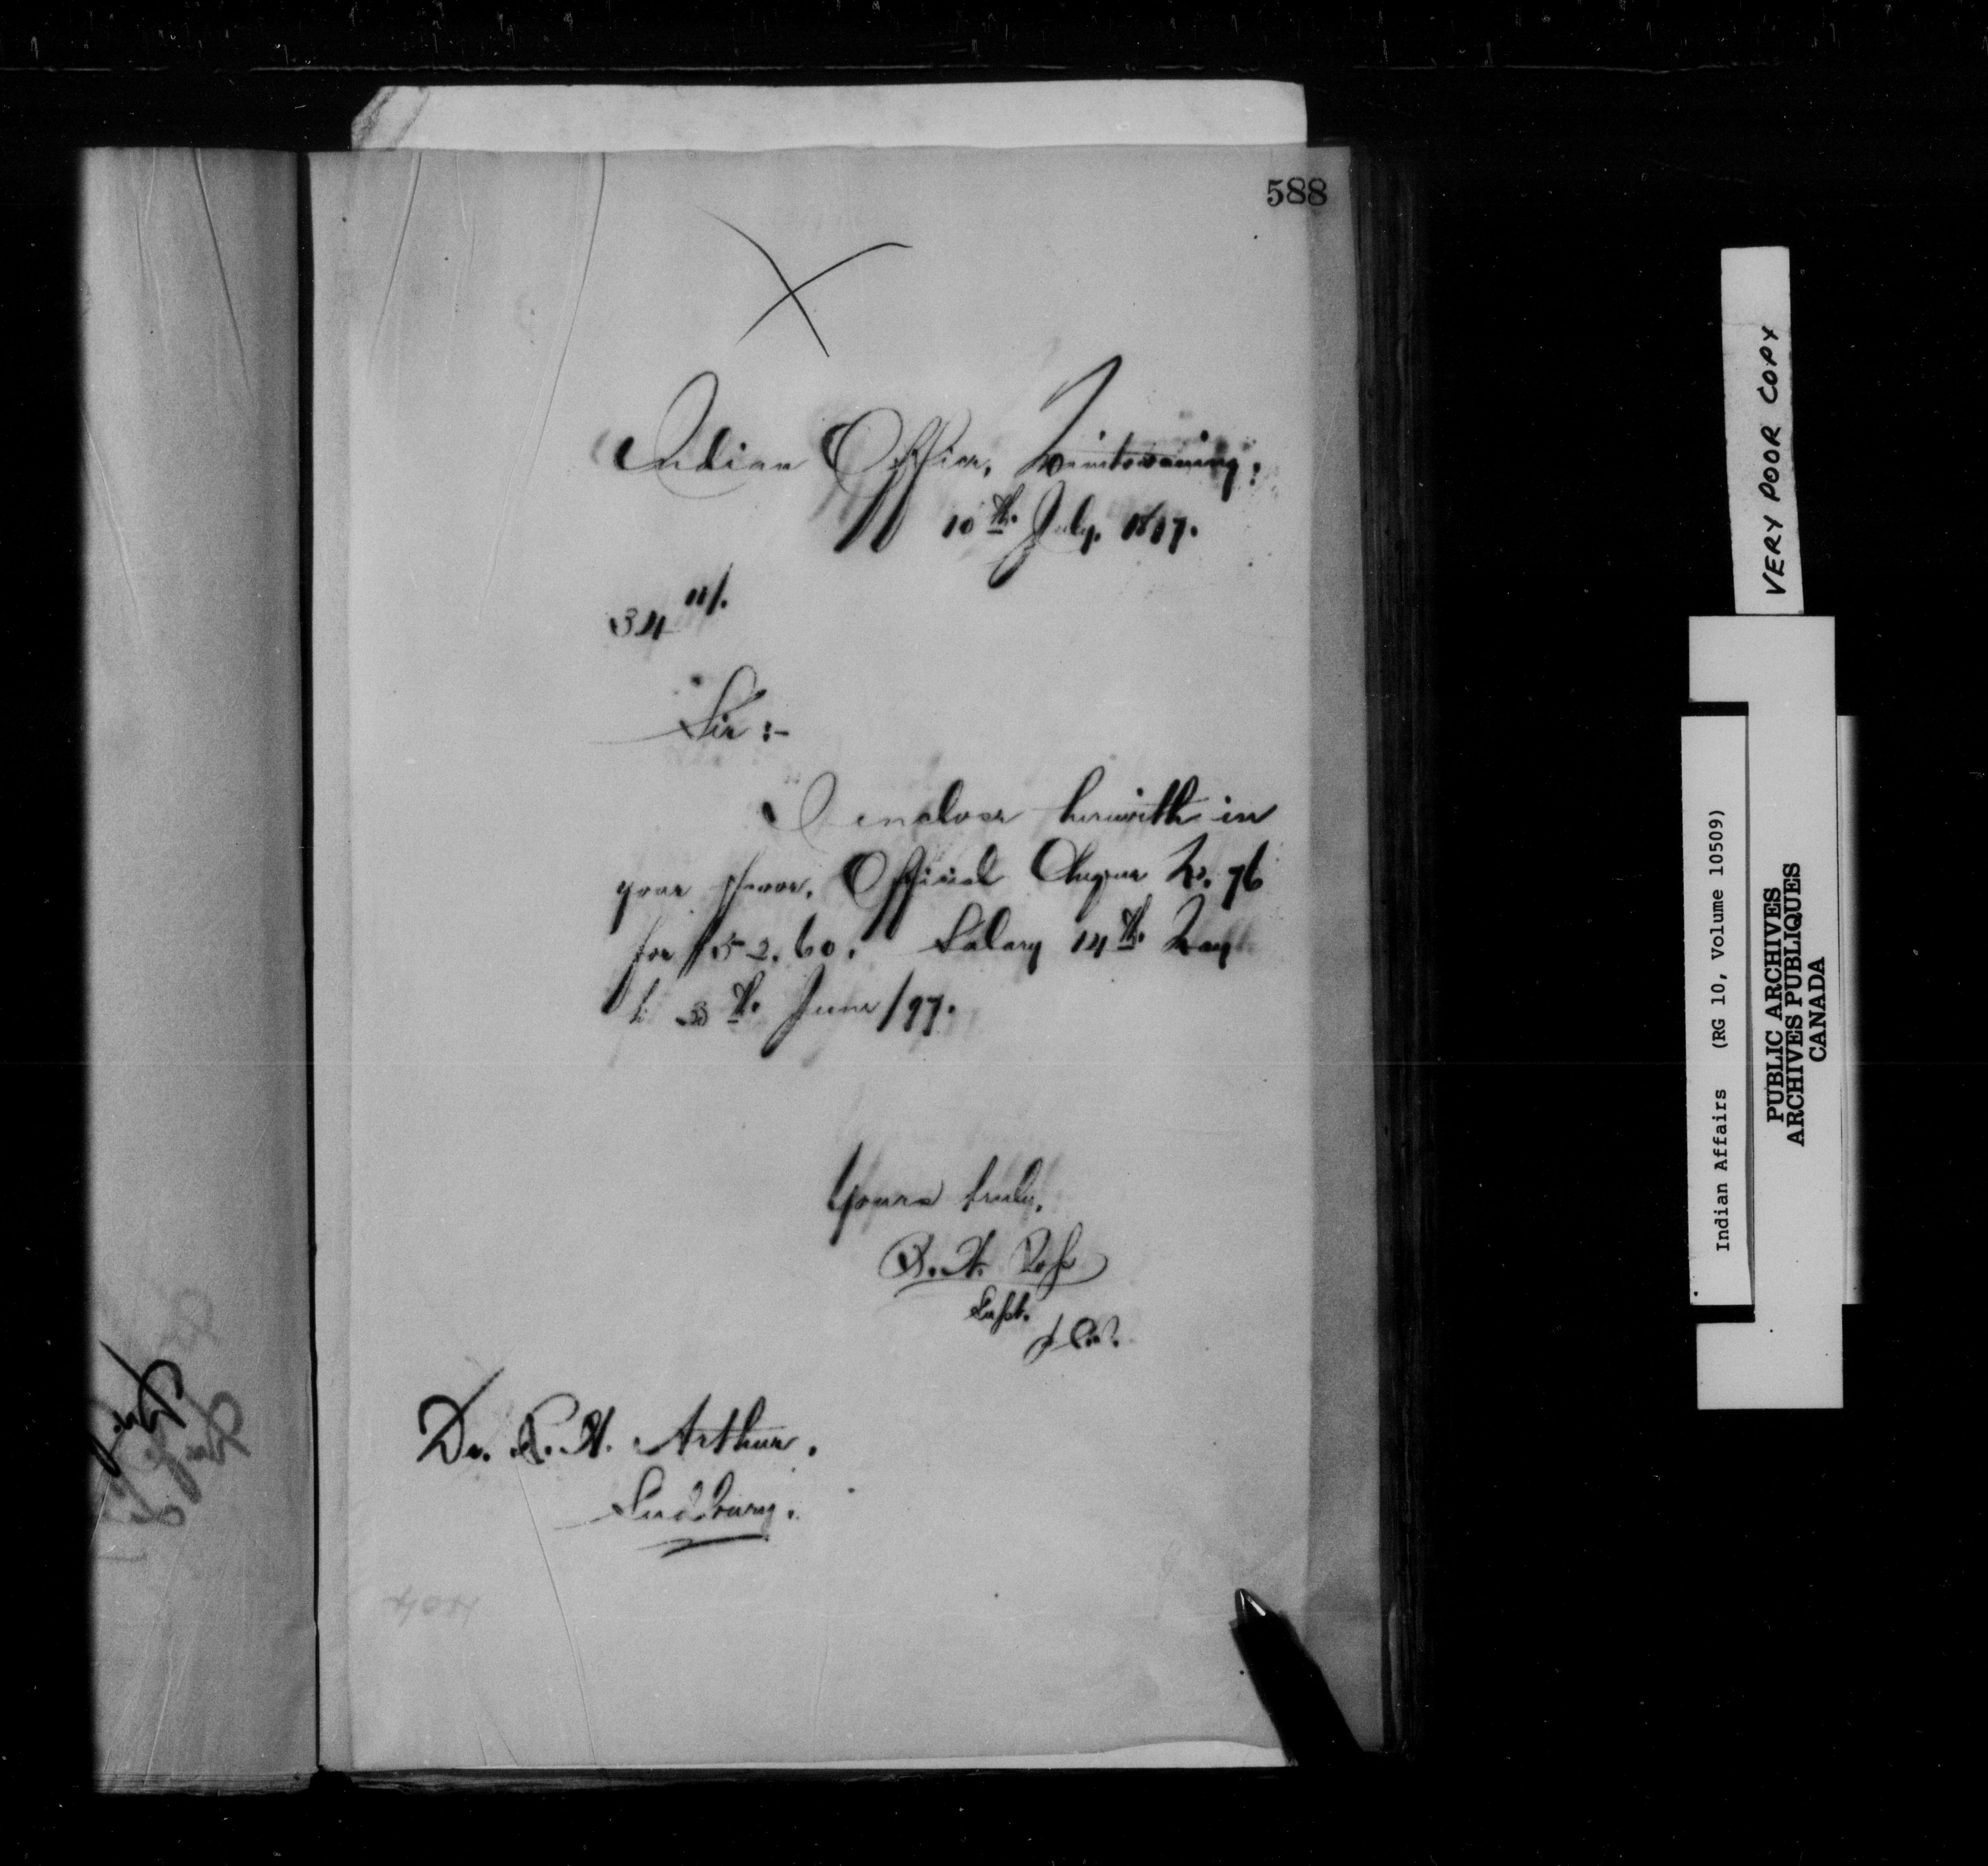 588
Indian Office, Manitowaning,
10th July, 1897.
34
Sir :-
I enclose herewith in
your favor, Official Cheque No. 76
for $52.60. Salary 14th May
to 30th June/97.
Yours truly,
B. W. Ross
Supt.
Dr. R. H. Arthur.
Sudbury.
VERY POOR COPY
Indian Affairs (RG 10, Volume 10509)
PUBLIC ARCHIVES
ARCHIVES PUBLIQUES
CANADA